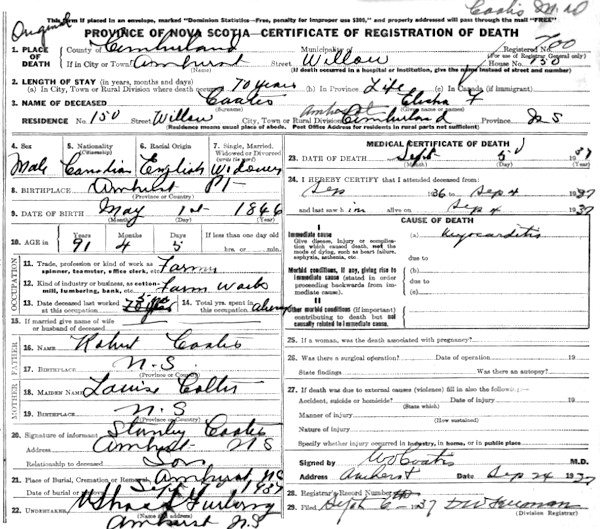 Coates M.D
Original
This form if placed in an envelope, marked "Dominion Statistics—Free, penalty for improper use $300," and properly addressed will pass through the mail "FREE"
PROVINCE OF NOVA SCOTIA—CERTIFICATE OF REGISTRATION OF DEATH
1. PLACE OF DEATH
County of Cumberland Municipality of Registered No. 780
(For use of Registrar General only)
If in City or Town Amherst Street Willow House No. 150
(If death occurred in a hospital or institution, give the name instead of street and number)
2. LENGTH OF STAY (in years, months and days)
(a) In City, Town or Rural Division where death occurred 70 years (b) In Province Life (c) In Canada (if immigrant)
3. NAME OF DECEASED Coates Elisha F
(Surname) (Given name or names)
RESIDENCE No. 150 Willow City, Town or Rural Division Amherst Cumberland Province NS
(Residence means usual place of abode. Post Office Address for residents in rural parts not sufficient)
4. Sex 5. Nationality (Citizenship) 6. Racial Origin 7. Single, Married, Widowed or Divorced (write the word)
Male Canadian English Widower
8. BIRTHPLACE Amherst Pt
(Province or Country)
9. DATE OF BIRTH May 1st 1846
(Month) (Day) (Year)
10. AGE in Years Months Days If less than one day
91 4 5 hrs. or min.
OCCUPATION
11. Trade, profession or kind of work as spinner, teamster, office clerk, etc. Farmer
12. Kind of industry or business, as cotton-mill, lumbering, bank, etc. Farm Work
13. Date deceased last worked at this occupation 14. Total yrs. spent in this occupation always
15. If married give name of wife or husband of deceased
FATHER
16. Name Robert Coates
17. Birthplace N.S
(Province or Country)
MOTHER
18. Maiden Name Louise
19. Birthplace N.S
(Province or Country)
20. Signature of informant Stanley Coates
Address Amherst NS
Relationship to deceased Son
21. Place of Burial, Cremation or Removal Amherst NS
Date of burial Sept 1937
22. UNDERTAKER
(Name and address)
Amherst N.S
MEDICAL CERTIFICATE OF DEATH
23. DATE OF DEATH Sept 1937
(Month) (Day) (Year)
24. I HEREBY CERTIFY that I attended deceased from:
Sep 1936 to Sep 4 1937
and last saw him alive on Sep 4 1937
CAUSE OF DEATH
I
Immediate cause
Give disease, injury or complication which caused death, not the mode of dying, such as heart failure, asphyxia, asthenia, etc.
(a) Myocarditis
due to
Morbid conditions, if any, giving rise to immediate cause (stated in order proceeding backwards from immediate cause).
(b)
due to
(c)
II
Other morbid conditions (if important) contributing to death but not causally related to immediate cause.
25. If a woman, was the death associated with pregnancy?
26. Was there a surgical operation? Date of operation 19
State findings Was there an autopsy?
27. If death was due to external causes (violence) fill in also the following:
Accident, suicide or homicide? Date of injury 19
(State which)
Manner of injury
(How sustained)
Nature of injury
Specify whether injury occurred in industry, in home, or in public place
Signed by Coates M.D.
Address Amherst Date Sep 24 1937
28. Registrar's Record Number
29. Filed Sept 6 - 37
(Division Registrar)